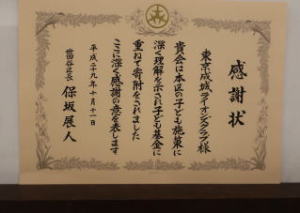 感謝状
東京成城ライオンズクラブ様
貴会は本区の子ども施策に
深く理解を示され子ども基金に
重ねて寄附をされました
ここに深く感謝の意を表します
平成二十九年十月十一日
世田谷区長 保坂展人